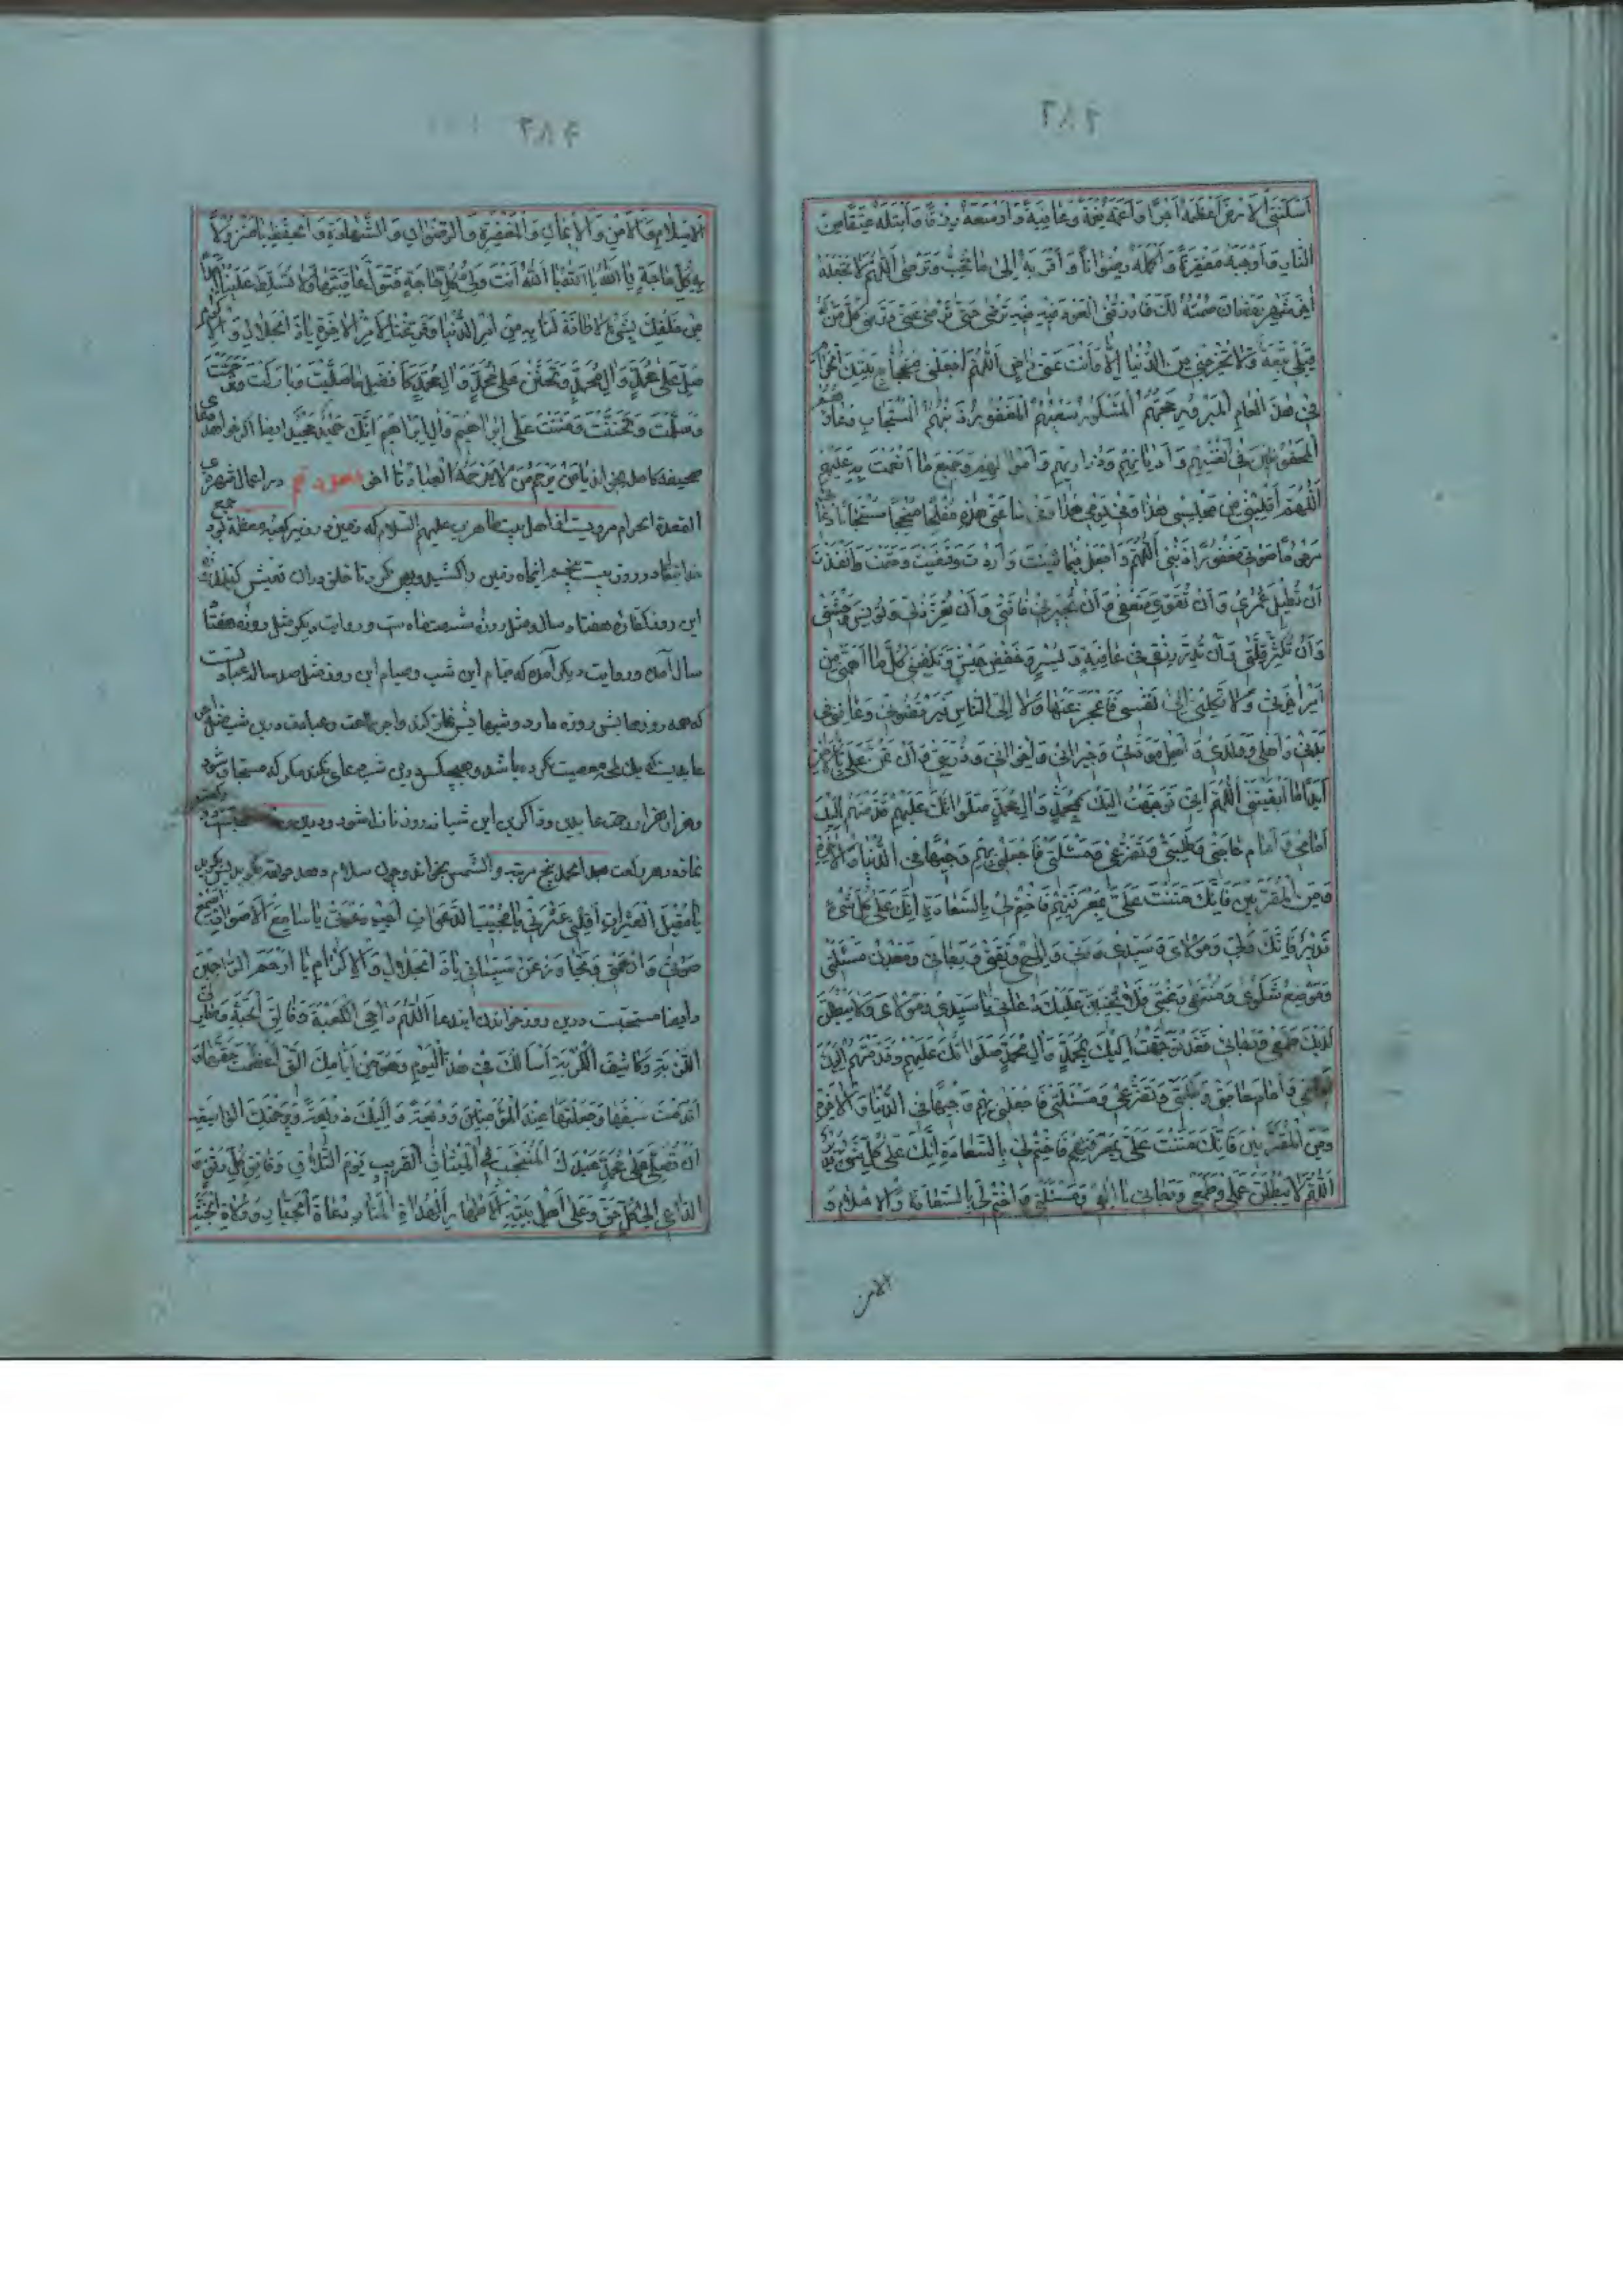 ٢٨٦
اَسْكَنْتَنِي الْاَرْضَ اَعْظَمَهُ اَجْرًا وَاَعَمَّهُ نِعْمَةً وَعَافِيَةً وَاَوْسَعَهُ رِزْقًا وَاَبْتَلَهُ عِتْقًا مِنَ
النَّارِ وَاَوْجَبَهُ مَغْفِرَةً وَاَكْمَلَهُ رِضْوَانًا وَاَقْرَبَهُ اِلٰى مَا تُحِبُّ وَتَرْضٰى اَللّٰهُمَّ لَا تَجْعَلْهُ
اٰخِرَ شَهْرِ رَمَضَانَ صُمْتُهُ لَكَ وَارْزُقْنِي الْعَوْدَ فِيهِ حَتّٰى تَرْضٰى عَنِّي وَتُرْضِيَ كُلَّ مَنْ لَهُ
قِبَلِي تَبِعَةٌ وَلَا تُخْرِجْنِي مِنَ الدُّنْيَا اِلَّا وَاَنْتَ عَنِّي رَاضٍ اَللّٰهُمَّ اجْعَلْنِي مِنْ حُجَّاجِ بَيْتِكَ الْحَرَامِ
فِي هٰذَا الْعَامِ الْمَبْرُورِ حَجُّهُمُ الْمَشْكُورِ سَعْيُهُمُ الْمَغْفُورِ ذَنْبُهُمُ الْمُسْتَجَابِ دُعَاؤُهُمْ
الْمَحْفُوظِينَ فِي اَنْفُسِهِمْ وَاَدْيَانِهِمْ وَذَرَارِيهِمْ وَاَمْوَالِهِمْ وَجَمِيعِ مَا اَنْعَمْتَ بِهِ عَلَيْهِمْ
اَللّٰهُمَّ اقْلِبْنِي مِنْ مَجْلِسِي هٰذَا وَفِي يَوْمِي هٰذَا وَفِي سَاعَتِي هٰذِهِ مُفْلِحًا مُنْجِحًا مُسْتَجَابًا دُعَائِي
مَرْحُومًا صَوْتِي مَغْفُورًا ذَنْبِي اَللّٰهُمَّ وَاجْعَلْ فِيمَا شِئْتَ وَاَرَدْتَ وَقَضَيْتَ وَحَتَمْتَ وَاَنْفَذْتَ
اَنْ تُطِيلَ عُمْرِي وَاَنْ تُقَوِّيَ ضَعْفِي وَاَنْ تَجْبُرَ فَاقَتِي وَاَنْ تُعِزَّ ذُلِّي وَتُونِسَ وَحْشَتِي
وَاَنْ تُكْثِرَ قِلَّتِي وَاَنْ تُدِرَّ رِزْقِي فِي عَافِيَةٍ وَيُسْرٍ وَخَفْضِ عَيْشٍ وَتَكْفِيَنِي كُلَّ مَا اَهَمَّنِي مِنْ
اَمْرِ اٰخِرَتِي وَلَا تَكِلْنِي اِلٰى نَفْسِي فَاَعْجِزَ عَنْهَا وَلَا اِلَى النَّاسِ فَيَرْفُضُونِي وَعَافِنِي فِي
بَدَنِي وَاَهْلِي وَوَلَدِي وَاَهْلِ مَوَدَّتِي وَجِيرَانِي وَاِخْوَانِي وَذُرِّيَّتِي وَاَنْ تَمُنَّ عَلَيَّ بِالْاَمْنِ
اَبَدًا مَا اَبْقَيْتَنِي اَللّٰهُمَّ اِنِّي تَوَجَّهْتُ اِلَيْكَ بِمُحَمَّدٍ وَاٰلِ مُحَمَّدٍ صَلَوَاتُكَ عَلَيْهِمْ وَقَدَّمْتُهُمْ اِلَيْكَ
اَمَامِي وَاَمَامَ حَاجَتِي وَطَلِبَتِي وَتَضَرُّعِي وَمَسْئَلَتِي فَاجْعَلْنِي بِهِمْ وَجِيهًا فِي الدُّنْيَا وَالْاٰخِرَةِ
وَمِنَ الْمُقَرَّبِينَ فَاِنَّكَ مَنَنْتَ عَلَيَّ بِمَعْرِفَتِهِمْ فَاخْتِمْ لِي بِالسَّعَادَةِ اِنَّكَ عَلٰى كُلِّ شَيْءٍ
قَدِيرٌ فَاِنَّكَ وَلِيِّي وَمَوْلَايَ وَسَيِّدِي وَرَبِّي وَاِلٰهِي وَثِقَتِي وَرَجَائِي وَمَعْدِنُ مَسْئَلَتِي
وَمَوْضِعُ شَكْوَايَ وَمُنْتَهٰى رَغْبَتِي فَلَا يَخِيبَنَّ عَلَيْكَ دُعَائِي يَا سَيِّدِي وَمَوْلَايَ وَلَا يَبْطُلَنَّ
لَدَيْكَ طَمَعِي وَرَجَائِي فَقَدْ تَوَجَّهْتُ اِلَيْكَ بِمُحَمَّدٍ وَاٰلِ مُحَمَّدٍ صَلَوَاتُكَ عَلَيْهِمْ وَقَدَّمْتُهُمْ اِلَيْكَ
اَمَامِي وَاَمَامَ حَاجَتِي وَطَلِبَتِي وَتَضَرُّعِي وَمَسْئَلَتِي فَاجْعَلْنِي بِهِمْ وَجِيهًا فِي الدُّنْيَا وَالْاٰخِرَةِ
وَمِنَ الْمُقَرَّبِينَ فَاِنَّكَ مَنَنْتَ عَلَيَّ بِمَعْرِفَتِهِمْ فَاخْتِمْ لِي بِالسَّعَادَةِ اِنَّكَ عَلٰى كُلِّ شَيْءٍ قَدِيرٌ
اَللّٰهُمَّ لَا يَبْطُلَنَّ عَمَلِي وَطَمَعِي وَرَجَائِي يَا اِلٰهِي وَمَسْئَلَتِي وَاخْتِمْ لِي بِالسَّعَادَةِ وَالْاِسْلَامِ وَ
الامن
الْاِسْلَامِ وَالْاَمْنِ وَالْاِيمَانِ وَالْمَغْفِرَةِ وَالرِّضْوَانِ وَالشَّهَادَةِ وَالْحِفْظِ يَا مَنْزُولًا
بِهِ كُلُّ حَاجَةٍ يَا اَللّٰهُ يَا اَللّٰهُ يَا اَللّٰهُ اَنْتَ وَلِيُّ كُلِّ حَاجَةٍ فَتَوَلَّ عَاقِبَتَهَا وَلَا تُسَلِّطْ عَلَيْنَا اَحَدًا
مِنْ خَلْقِكَ بِشَيْءٍ لَا طَاقَةَ لَنَا بِهِ مِنْ اَمْرِ الدُّنْيَا وَفَرِّغْنَا لِاَمْرِ الْاٰخِرَةِ يَا ذَا الْجَلَالِ وَالْاِكْرَامِ
صَلِّ عَلٰى مُحَمَّدٍ وَاٰلِ مُحَمَّدٍ وَتَحَنَّنْ عَلٰى مُحَمَّدٍ وَاٰلِ مُحَمَّدٍ كَاَفْضَلِ مَا صَلَّيْتَ وَبَارَكْتَ وَتَرَحَّمْتَ
وَسَلَّمْتَ وَتَحَنَّنْتَ وَمَنَنْتَ عَلٰى اِبْرَاهِيمَ وَاٰلِ اِبْرَاهِيمَ اِنَّكَ حَمِيدٌ مَجِيدٌ ايضا اكر خواهد دعای
صحيفه كامله بخواند يَا مَنْ يَرْحَمُ مَنْ لَا يَرْحَمُهُ الْعِبَادُ تا اخر در اعمال شهر ذی
القعدة الحرام مرويست از اهل بيت طاهرين عليهم السلام كه زمين در زير كعبه معظمه جمع بود
خدايتعالى در روز بيست پنجم اين ماه زمين را كشيد و پهن كرد تا خلق در ان تعيش كنند روزه
اين روز كفاره هفتاد سال و مثل روزه شصت ماه ست و روايت ديكر مثل روزه هفتاد
سال آمده و روايت ديكر آمده كه قيام اين شب و صيام اين روز مثل صد سال عبادت است
كه همه روزهايش روزه دارد و شبهايش نماز كند واجر طاعت وعبادت درين شب مثل اجر
عابديست كه يك لحظه معصيت نكرده باشد و هيچكس درين شب دعاى نكند مكر كه مستجاب شود
وهزار هزار رحمت بعابدين وذاكرين اين شبانه روز نازل شود ودرين
نماز در هر ركعت حمد پنج مرتبه والشمس بخواند وچون سلام دهد
يَا مُقِيلَ الْعَثَرَاتِ اَقِلْنِي عَثْرَتِي يَا مُجِيبَ الدَّعَوَاتِ اَجِبْ دَعْوَتِي يَا سَامِعَ الْاَصْوَاتِ اسْمَعْ
صَوْتِي وَارْحَمْنِي وَتَجَاوَزْ عَنْ سَيِّئَاتِي يَا ذَا الْجَلَالِ وَالْاِكْرَامِ يَا اَرْحَمَ الرَّاحِمِينَ
وايضا مستحبست درين روز خواندن ايندعا اَللّٰهُمَّ دَاحِيَ الْكَعْبَةِ وَفَالِقَ الْحَبَّةِ وَصَارِفَ
اللَّزْبَةِ وَكَاشِفَ الْكُرْبَةِ اَسْاَلُكَ فِي هٰذَا الْيَوْمِ وَهُوَ مِنْ اَيَّامِكَ الَّتِي اَعْظَمْتَ حَقَّهَا وَ
اَقْدَمْتَ سَبْقَهَا وَجَعَلْتَهَا عِنْدَ الْمُؤْمِنِينَ وَدِيعَةً وَاِلَيْكَ ذَرِيعَةً وَبِرَحْمَتِكَ الْوَاسِعَةِ
اَنْ تُصَلِّيَ عَلٰى مُحَمَّدٍ عَبْدِكَ الْمُنْتَجَبِ فِي الْمِيثَاقِ الْقَرِيبِ يَوْمَ التَّلَاقِ وَفَاتِقِ كُلِّ رَتْقٍ وَ
الدَّاعِي اِلٰى كُلِّ حَقٍّ وَعَلٰى اَهْلِ بَيْتِهِ الْاَطْهَارِ الْهُدَاةِ الْمَنَارِ دَعَائِمِ الْجَبَّارِ وَوُلَاةِ الْجَنَّةِ